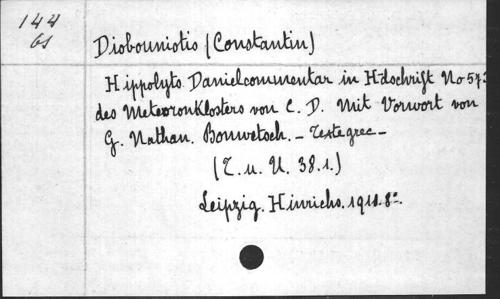 144
6s
Diobouniotis (Constantin)
Hippolyts Danielcommentar in Hdschrift No 573
des Meteoronklosters von C. D. Mit Vorwort von
G. Nathan. Bonwetsch. – Texte grec –
(T. u. U. 38.1.)
Leipzig. Hinrichs. 1911. 8º.